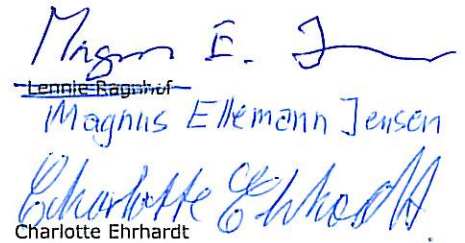 Magnus E. J
Lennie Ragnhof
Magnus Ellemann Jensen
Charlotte Ehrhardt
Charlotte Ehrhardt